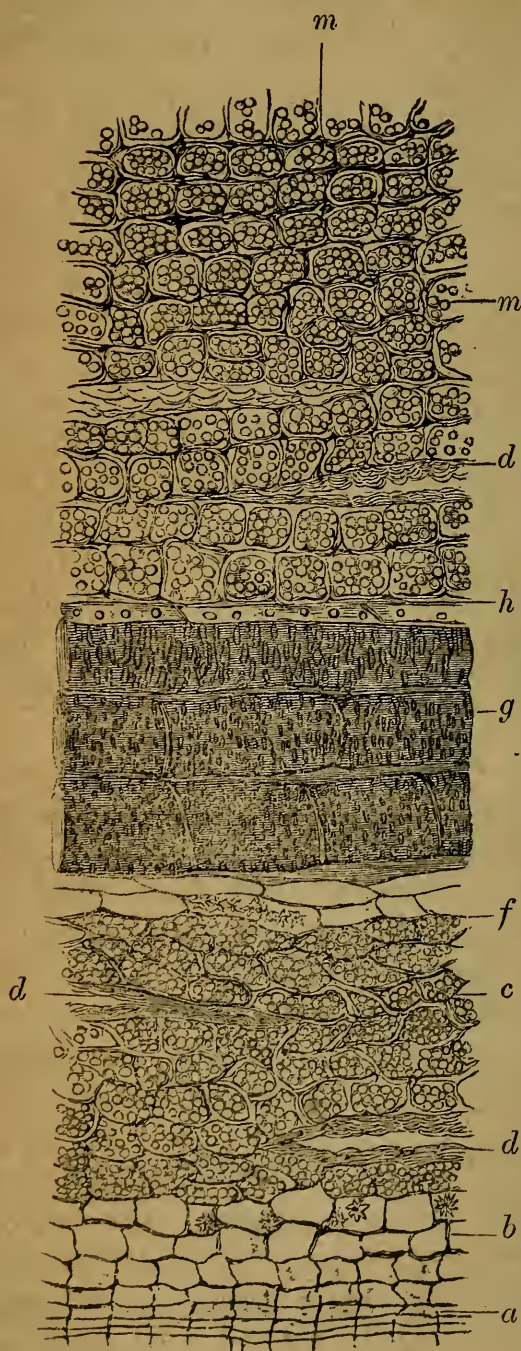 m
m
d
h
g
f
d c
d
b
a